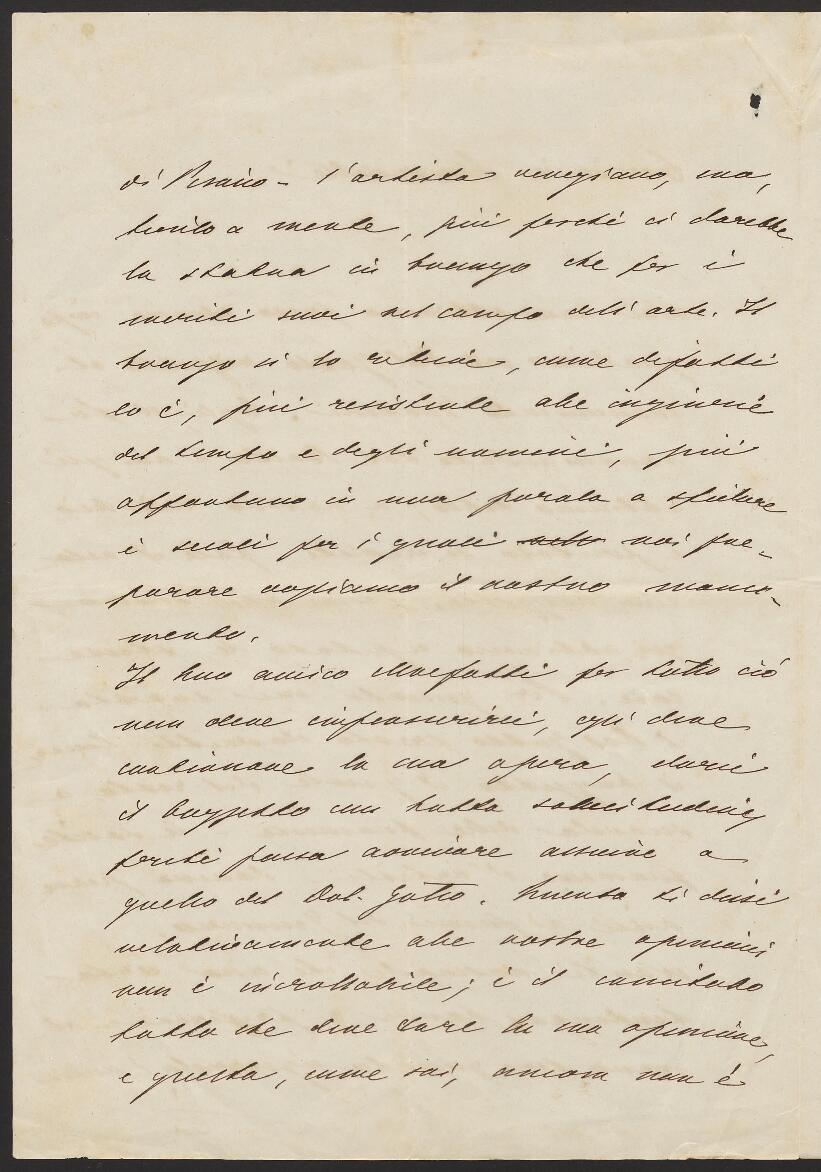 di Pirano - l'artista veneziano, ma,
tienilo a mente, più perchè ci darebbe
la statua in bronzo che per i
meriti suoi nel campo dell'arte. Il
bronzo si lo ritiene, come difatti
lo è, più resistente alle ingiurie
del tempo e degli uomini, più
in una parola a sfidare
i secoli per i quali noi pre-
parare vogliamo il nostro monu-
mento.
Il tuo amico Malfatti per tutto ciò
non deve impensierirsi, egli deve
continuare la sua opera, darci
il bozzetto con tutta sollecitudine
perchè possa arrivare assieme a
quello del Dal Zotto. Quanto ti dissi
relativamente alle nostre opinioni
non è incrollabile; è il comitato
tutto che deve dare la sua opinione,
e questa, come sai, ancora non è